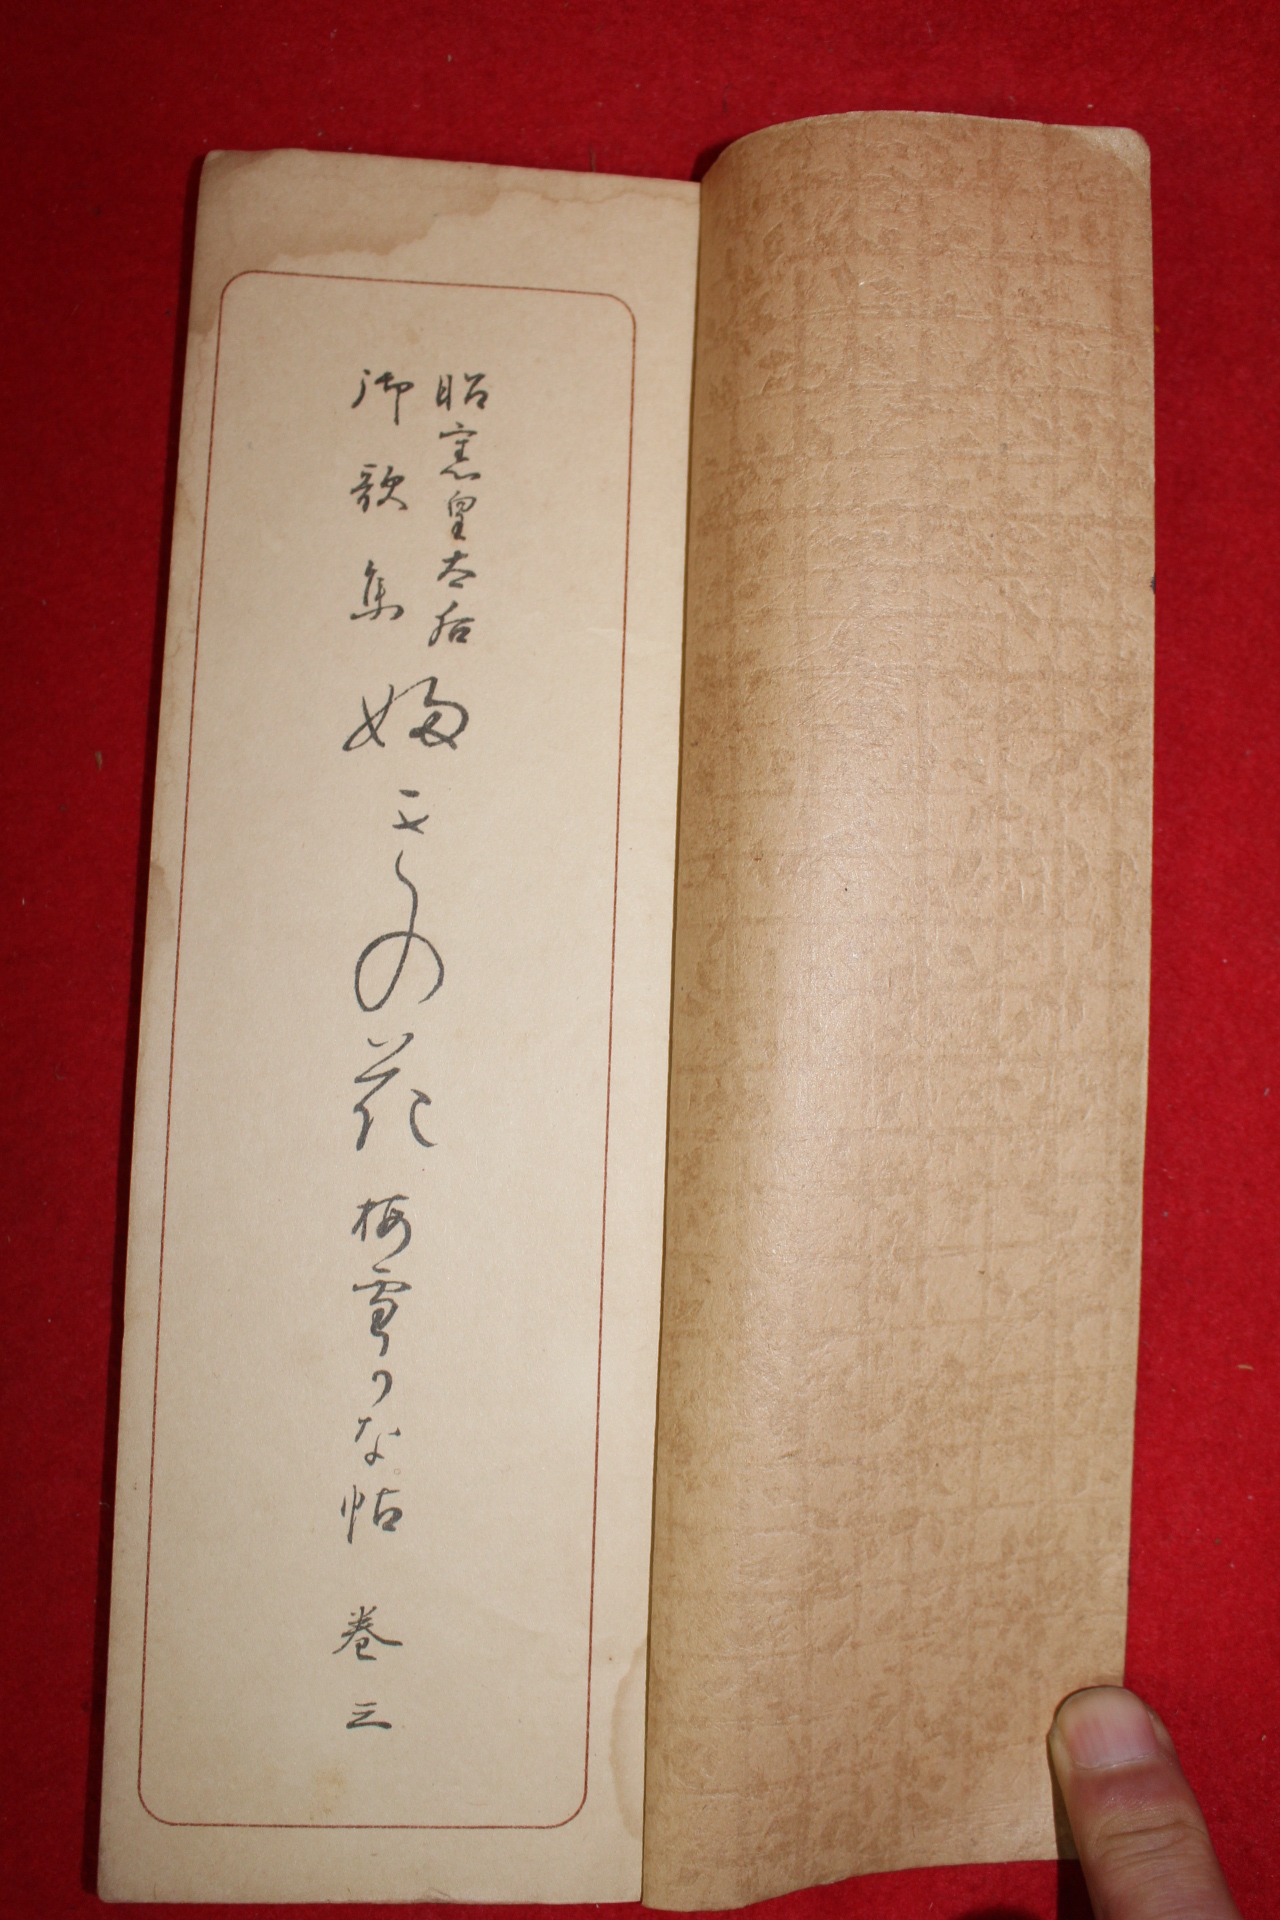 昭憲皇太后
御歌集
婦きの花 梅雪かな帖 巻三